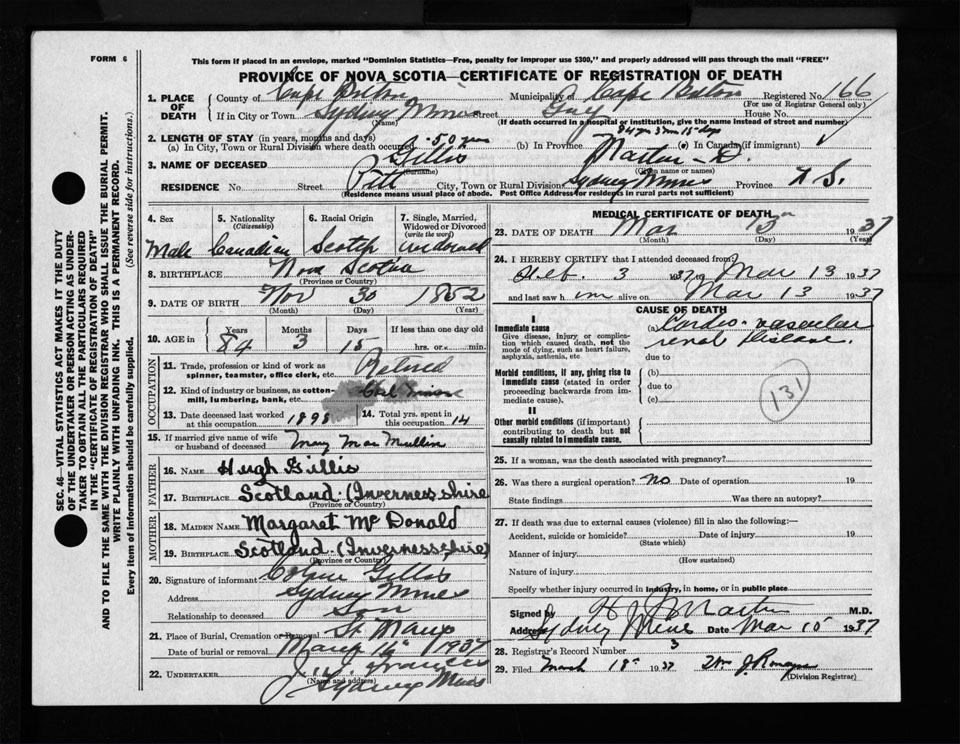 FORM 6
This form if placed in an envelope, marked "Dominion Statistics—Free, penalty for improper use $300," and properly addressed will pass through the mail "FREE"
PROVINCE OF NOVA SCOTIA—CERTIFICATE OF REGISTRATION OF DEATH
SEC. 46—VITAL STATISTICS ACT MAKES IT THE DUTY
OF THE UNDERTAKER OR PERSON ACTING AS UNDER-
TAKER TO OBTAIN ALL THE PARTICULARS REQUIRED
IN THE "CERTIFICATE OF REGISTRATION OF DEATH"
AND TO FILE THE SAME WITH THE DIVISION REGISTRAR WHO SHALL ISSUE THE BURIAL PERMIT.
WRITE PLAINLY WITH UNFADING INK. THIS IS A PERMANENT RECORD.
Every item of information should be carefully supplied. (See reverse side for instructions.)
1. PLACE OF DEATH County of Cape Breton Municipality of Cape Breton Registered No. 166
(For use of Registrar General only)
If in City or Town Sydney Mines Street House No.
(Name) (If death occurred in a hospital or institution, give the name instead of street and number)
2. LENGTH OF STAY (in years, months and days) 84 yrs 3 mos 15 days
(a) In City, Town or Rural Division where death occurred 50 years (b) In Province (c) In Canada (if immigrant)
3. NAME OF DECEASED Gillis
(Surname) (Given name or names)
RESIDENCE No. Street Pitt City, Town or Rural Division Sydney Mines Province N S.
(Residence means usual place of abode. Post Office Address for residents in rural parts not sufficient)
4. Sex Male
5. Nationality (Citizenship) Canadian
6. Racial Origin Scotch
7. Single, Married, Widowed or Divorced (write the word) Widowed
8. BIRTHPLACE Nova Scotia
(Province or Country)
9. DATE OF BIRTH Nov 30 1852
(Month) (Day) (Year)
10. AGE in Years 84 Months 3 Days 15 If less than one day old hrs. or min.
OCCUPATION
11. Trade, profession or kind of work as spinner, teamster, office clerk, etc. Retired
12. Kind of industry or business, as cotton-mill, lumbering, bank, etc.
13. Date deceased last worked at this occupation 1898
14. Total yrs. spent in this occupation 14
15. If married give name of wife or husband of deceased Mary Mac Mullin
FATHER
16. NAME Hugh Gillis
17. BIRTHPLACE Scotland. (Inverness shire
MOTHER
18. MAIDEN NAME Margaret McDonald
19. BIRTHPLACE Scotland. (Invernesshire)
(Province or Country)
20. Signature of informant Gillis
Address Sydney Mines
Relationship to deceased Son
21. Place of Burial, Cremation or Removal St Marys
Date of burial or removal March 16 1937
22. UNDERTAKER Sydney Mines
(Name and address)
MEDICAL CERTIFICATE OF DEATH
23. DATE OF DEATH Mar 1937
(Month) (Day) (Year)
24. I HEREBY CERTIFY that I attended deceased from:
Feb. 3 1937 to Mar 13 1937
and last saw him alive on Mar 13 1937
CAUSE OF DEATH
I
Immediate cause
Give disease, injury or complication which caused death, not the mode of dying, such as heart failure, asphyxia, asthenia, etc
(a) Cardio-vascular
renal disease.
due to
Morbid conditions, if any, giving rise to immediate cause (stated in order proceeding backwards from immediate cause).
(b)
due to
(c)
131
II
Other morbid conditions (if important) contributing to death but not causally related to immediate cause.
25. If a woman, was the death associated with pregnancy?
26. Was there a surgical operation? No Date of operation 19
State findings Was there an autopsy?
27. If death was due to external causes (violence) fill in also the following:—
Accident, suicide or homicide? Date of injury 19
(State which)
Manner of injury
(How sustained)
Nature of injury
Specify whether injury occurred in industry, in home, or in public place
Signed by M.D.
Address Sydney Mines Date Mar 15 1937
28. Registrar's Record Number 3
29. Filed March 18th 1937
(Division Registrar)